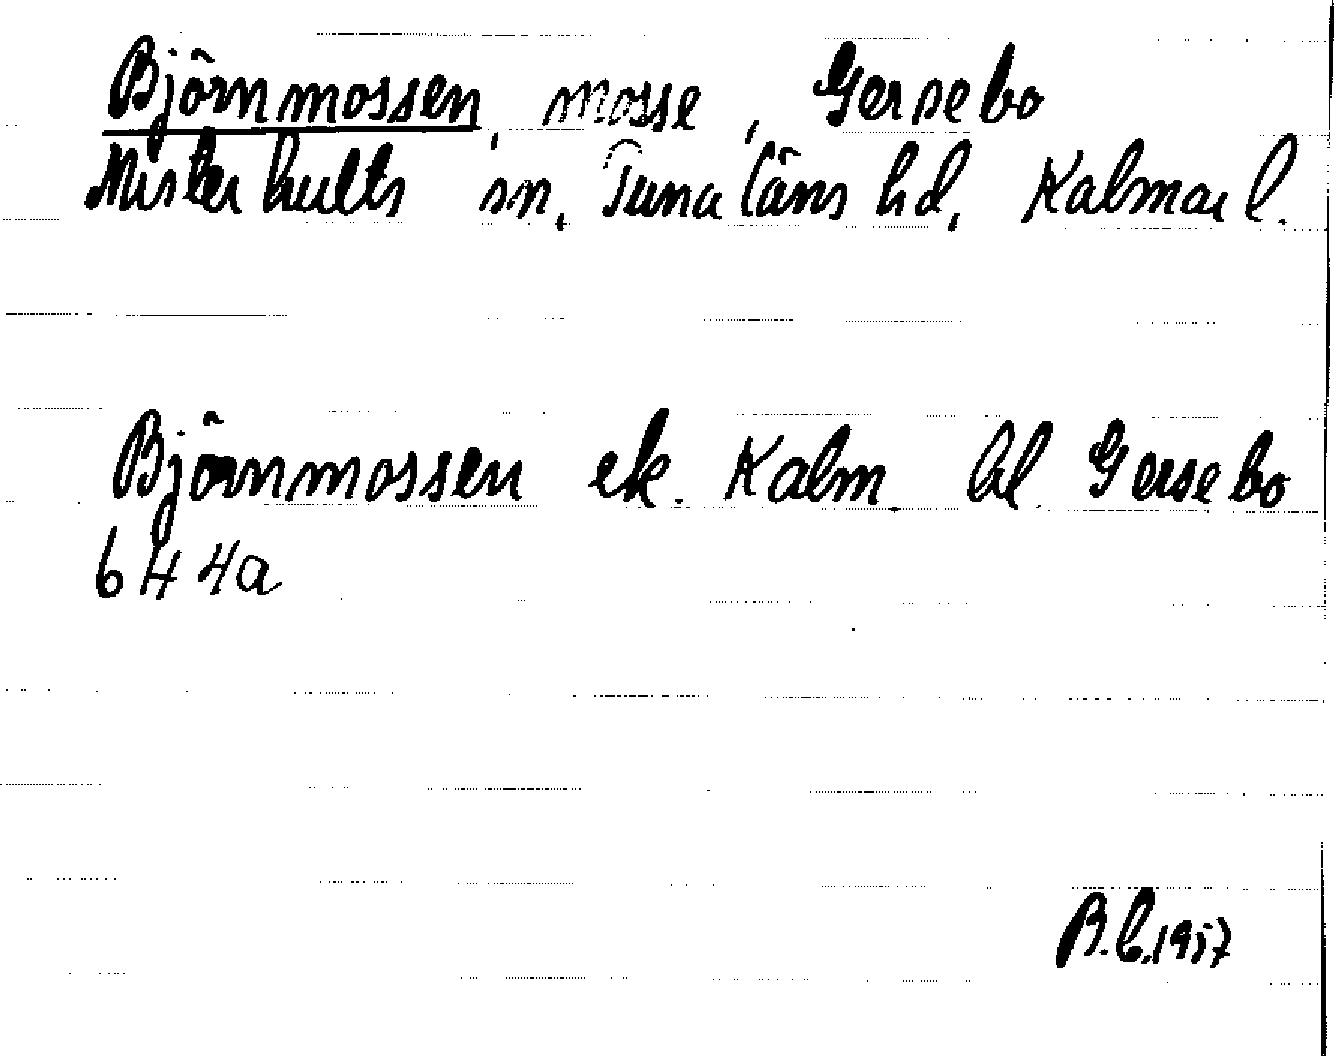 Björnmossen, mosse, Gersebo
Misterhults sn, Tunaläns hd, Kalmar l.
Björnmossen ek. Kalm. bl Gersebo
6 H 4a
B.C. 1957